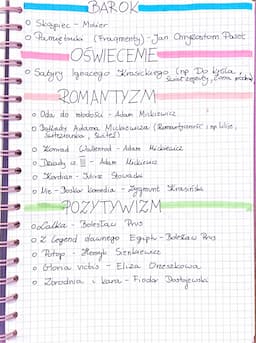 BAROK
Skąpiec - Molier
Pamiętniki (Fragmenty) - Jan Chryzostom Pasek
OŚWIECENIE
Satyry Ignacego Krasickiego (np Do króla,
Świat zepsuty, Żona modna)
ROMANTYZM
Oda do młodości - Adam Mickiewicz
Ballady Adama Mickiewicza (Romantyczność i np Lilije,
Świtezianka, Świteź)
Konrad Wallenrod - Adam Mickiewicz
Dziady cz III - Adam Mickiewicz
Kordian - Juliusz Słowacki
Nie-Boska komedia - Zygmunt Krasiński
POZYTYWIZM
Lalka - Bolesław Prus
Z legend dawnego Egiptu - Bolesław Prus
Potop - Henryk Sienkiewicz
Gloria victis - Eliza Orzeszkowa
Zbrodnia i kara - Fiodor Dostojewski